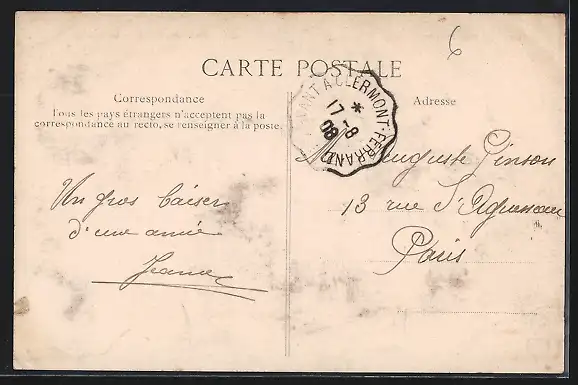 6
CARTE POSTALE
Correspondance
Tous les pays étrangers n'acceptent pas la
correspondance au recto, se renseigner à la poste.
Un gros baiser
d'une amie
Jeanne
Adresse
A CLERMONT-FERRAND
17-8
08
Auguste Pinson
13 rue d'Aguesseau
Paris